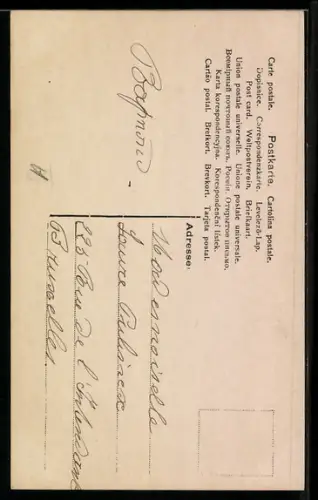 Carte postale. Postkarte. Cartolina postale.
Dopisnice. Correspondenzkarte. Levelező-Lap.
Post card. Weltpostverein. Briefkaart.
Union postale universelle. Unione postale universale.
Всемірный почтовый союзъ. Россія. Открытое письмо.
Karta korespondencyjna. Korespondenční lístek.
Cartão postal. Bretkort. Brevkort. Tarjeta postal.
Adresse:
Mademoiselle
225 Rue de l'Intendant
Bruxelles